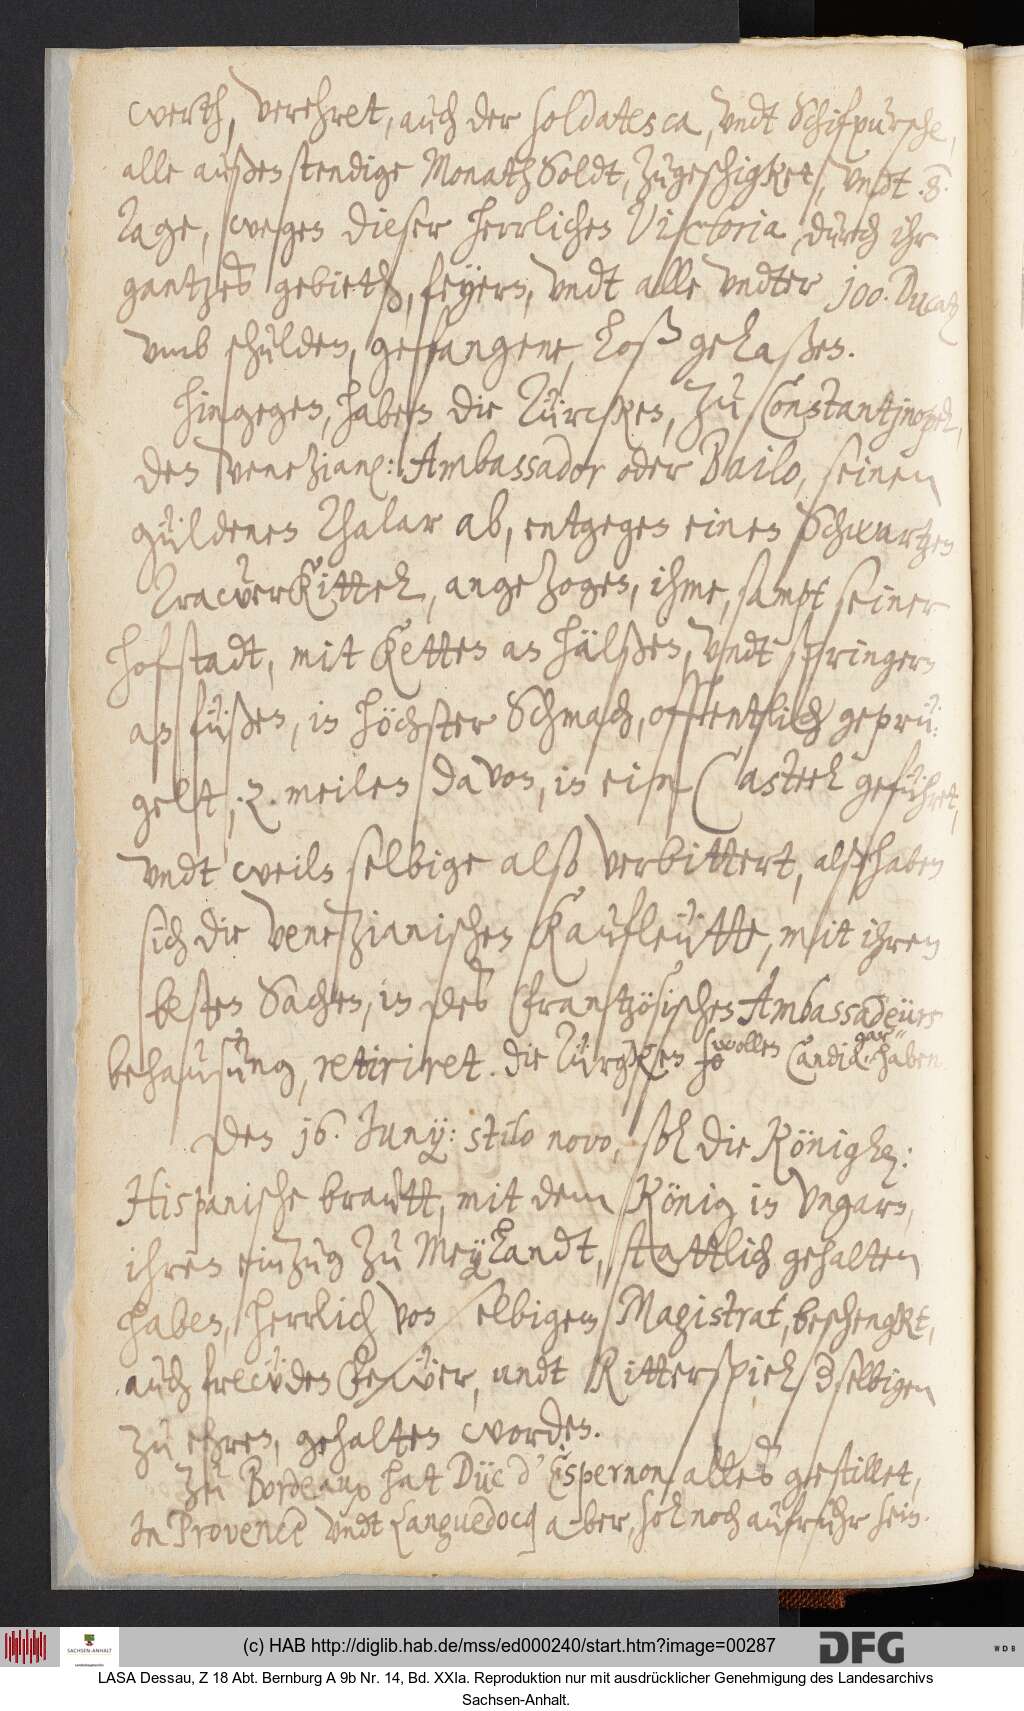 werth, verehret, auch der soldatesca, vndt Schifpursche,
alle außenstendige MonathSoldt, zugeschigket, vndt .8.
Tage, wegen dieser herrlichen Victoria, durch ihr
gantzes gebieth, feyern, vndt alle vndter 100. Ducatz
vmb schulden, gefangene, loß gelaßen.
Hingegen, haben die Türcken, zu Constantinopel,
den Venezian: Ambassador oder Bailo, seinen
güldenen Thalar ab, entgegen einen Schwartzen
TrawerKittel, angezogen, ihme, sampt seiner
hofstadt, mit Ketten an hälßen, vndt springern
an füßen, in höchster Schmach, offentlich geprü¬
gelt, .2. meilen davon, in ein Casteel geführet,
vndt weiln selbige also verbittert, alß haben
sich die Venezianischen Kaufleütte, mit ihren
besten Sachen, in des Frantzösischen Ambassadeurs
behausung, retiriret. Die Türgken wollen Candia gar haben.
Den 16. Junij: stilo novo, sol die Königl:
Hispanische brautt, mit dem König in Vngarn,
ihren einzug zu Meylandt, stattlich gehalten
haben, herrlich von selbigem Magistrat, beschengkt,
auch frewden Fewer, undt Ritterspiel derselbigen
zu ehren, gehalten worden.
Zu Bordeaux hat Duc d'Espernon alles gestillet,
In Provence vndt Languedocq aber, sol noch aufruhr sein.
(c) HAB http://diglib.hab.de/mss/ed000240/start.htm?image=00287
SACHSEN-ANHALT
DFG
WDB
LASA Dessau, Z 18 Abt. Bernburg A 9b Nr. 14, Bd. XXIa. Reproduktion nur mit ausdrücklicher Genehmigung des Landesarchivs
Sachsen-Anhalt.